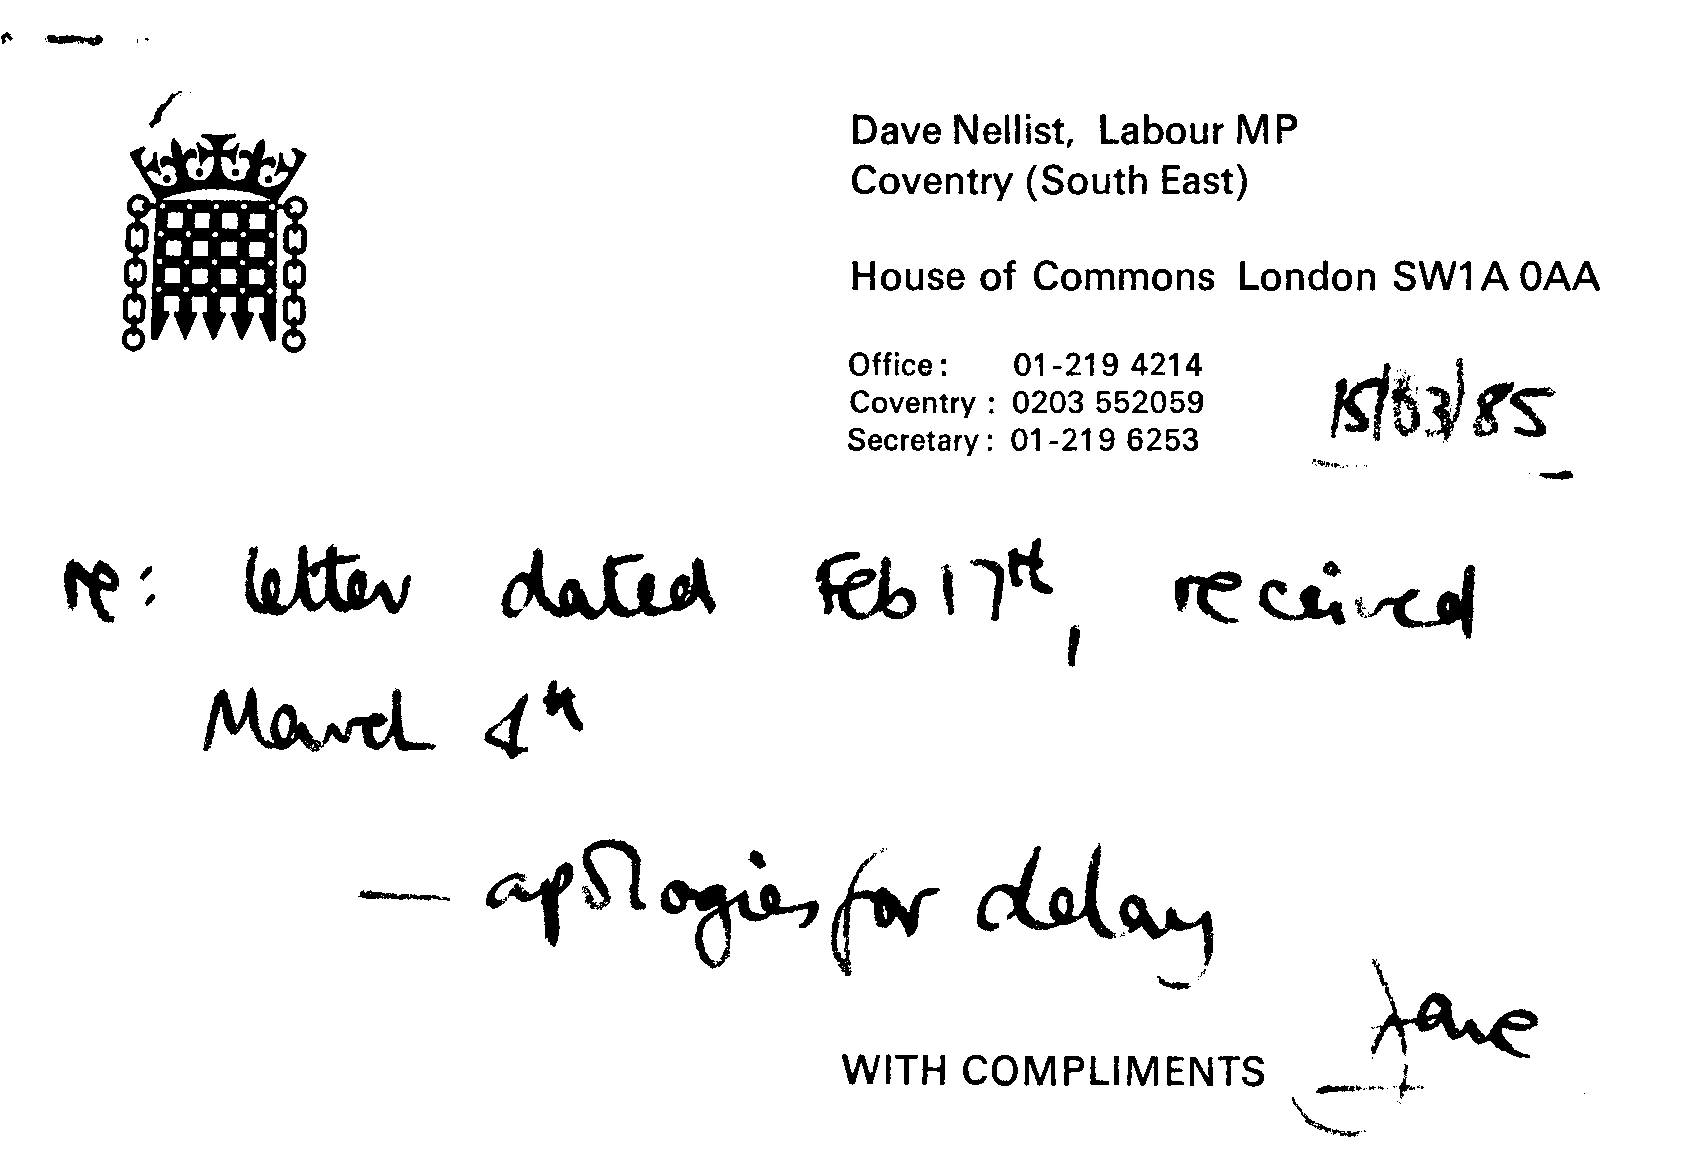 Dave Nellist, Labour MP
Coventry (South East)
House of Commons London SW1A 0AA
Office: 01-219 4214
Coventry: 0203 552059
Secretary: 01-219 6253
15/03/85
re: letter dated Feb 17th, received
March 4th
— apologies for delay
Dave
WITH COMPLIMENTS